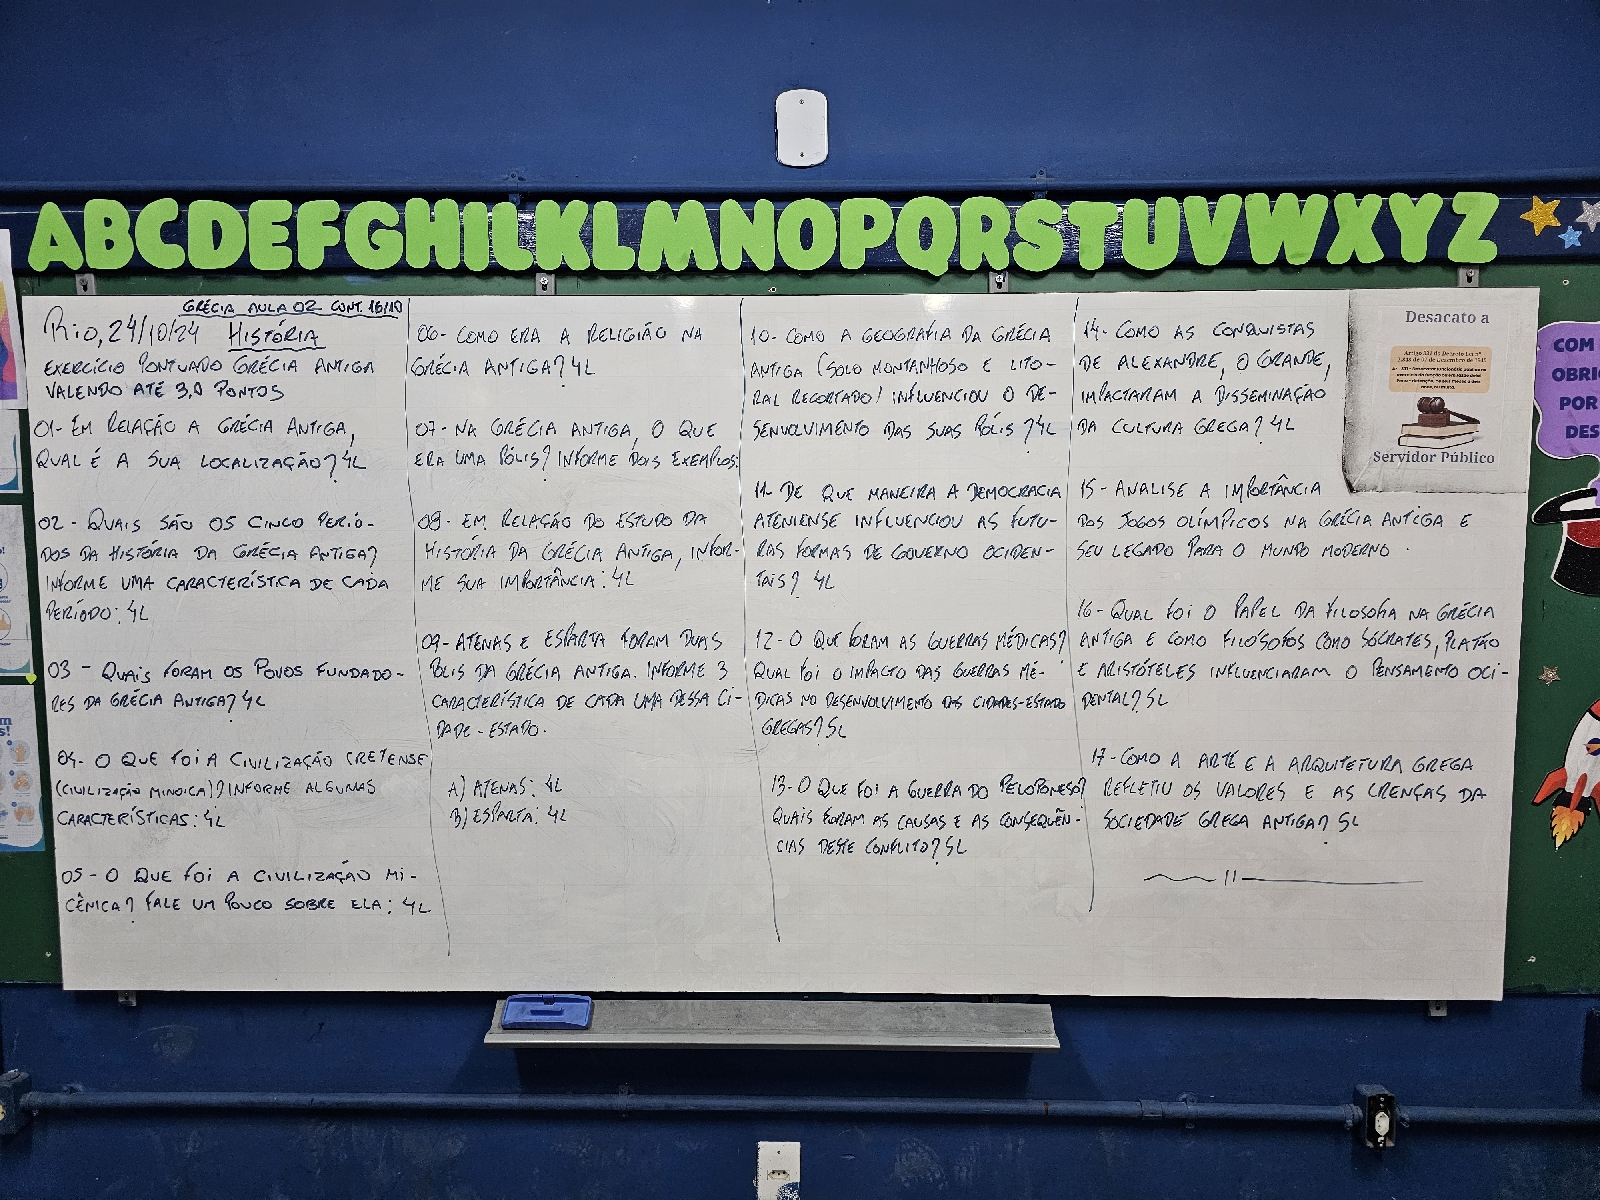 ABCDEFGHILKLMNOPQRSTUVWXYZ
GRÉCIA AULA 02 CONT. 16/10
Rio, 24/10/24 HISTÓRIA
EXERCÍCIO PONTUADO GRÉCIA ANTIGA
VALENDO ATÉ 3,0 PONTOS
01- EM RELAÇÃO A GRÉCIA ANTIGA,
QUAL É A SUA LOCALIZAÇÃO? 4L
02 - QUAIS SÃO OS CINCO PERÍO-
DOS DA HISTÓRIA DA GRÉCIA ANTIGA?
INFORME UMA CARACTERÍSTICA DE CADA
PERÍODO: 4L
03 - QUAIS FORAM OS POVOS FUNDADO-
RES DA GRÉCIA ANTIGA? 4L
04- O QUE FOI A CIVILIZAÇÃO CRETENSE
(CIVILIZAÇÃO MINOICA)? INFORME ALGUMAS
CARACTERÍSTICAS: 4L
05 - O QUE FOI A CIVILIZAÇÃO MI-
CÊNICA? FALE UM POUCO SOBRE ELA: 4L
06- COMO ERA A RELIGIÃO NA
GRÉCIA ANTIGA? 4L
07- NA GRÉCIA ANTIGA, O QUE
ERA UMA PÓLIS? INFORME DOIS EXEMPLOS:
08- EM RELAÇÃO DO ESTUDO DA
HISTÓRIA DA GRÉCIA ANTIGA, INFOR-
ME SUA IMPORTÂNCIA: 4L
09- ATENAS E ESPARTA FORAM DUAS
PÓLIS DA GRÉCIA ANTIGA. INFORME 3
CARACTERÍSTICA DE CADA UMA DESSA CI-
DADE - ESTADO.
A) ATENAS: 4L
B) ESPARTA: 4L
10- COMO A GEOGRAFIA DA GRÉCIA
ANTIGA (SOLO MONTANHOSO E LITO-
RAL RECORTADO) INFLUENCIOU O DE-
SENVOLVIMENTO DAS SUAS PÓLIS? 4L
11- DE QUE MANEIRA A DEMOCRACIA
ATENIENSE INFLUENCIOU AS FUTU-
RAS FORMAS DE GOVERNO OCIDEN-
TAIS? 4L
12- O QUE FORAM AS GUERRAS MÉDICAS?
QUAL FOI O IMPACTO DAS GUERRAS MÉ-
DICAS NO DESENVOLVIMENTO DAS CIDADES-ESTADO
GREGAS? 5L
13- O QUE FOI A GUERRA DO PELOPONESO?
QUAIS FORAM AS CAUSAS E AS CONSEQUÊN-
CIAS DESTE CONFLITO? 5L
14- COMO AS CONQUISTAS
DE ALEXANDRE, O GRANDE,
IMPACTARAM A DISSEMINAÇÃO
DA CULTURA GREGA? 4L
15- ANALISE A IMPORTÂNCIA
DOS JOGOS OLÍMPICOS NA GRÉCIA ANTIGA E
SEU LEGADO PARA O MUNDO MODERNO.
16- QUAL FOI O PAPEL DA FILOSOFIA NA GRÉCIA
ANTIGA E COMO FILÓSOFOS COMO SÓCRATES, PLATÃO
E ARISTÓTELES INFLUENCIARAM O PENSAMENTO OCI-
DENTAL? 5L
17- COMO A ARTE E A ARQUITETURA GREGA
REFLETIU OS VALORES E AS CRENÇAS DA
SOCIEDADE GREGA ANTIGA? 5L
Desacato a
Servidor Público
COM
OBRI
POR
DES